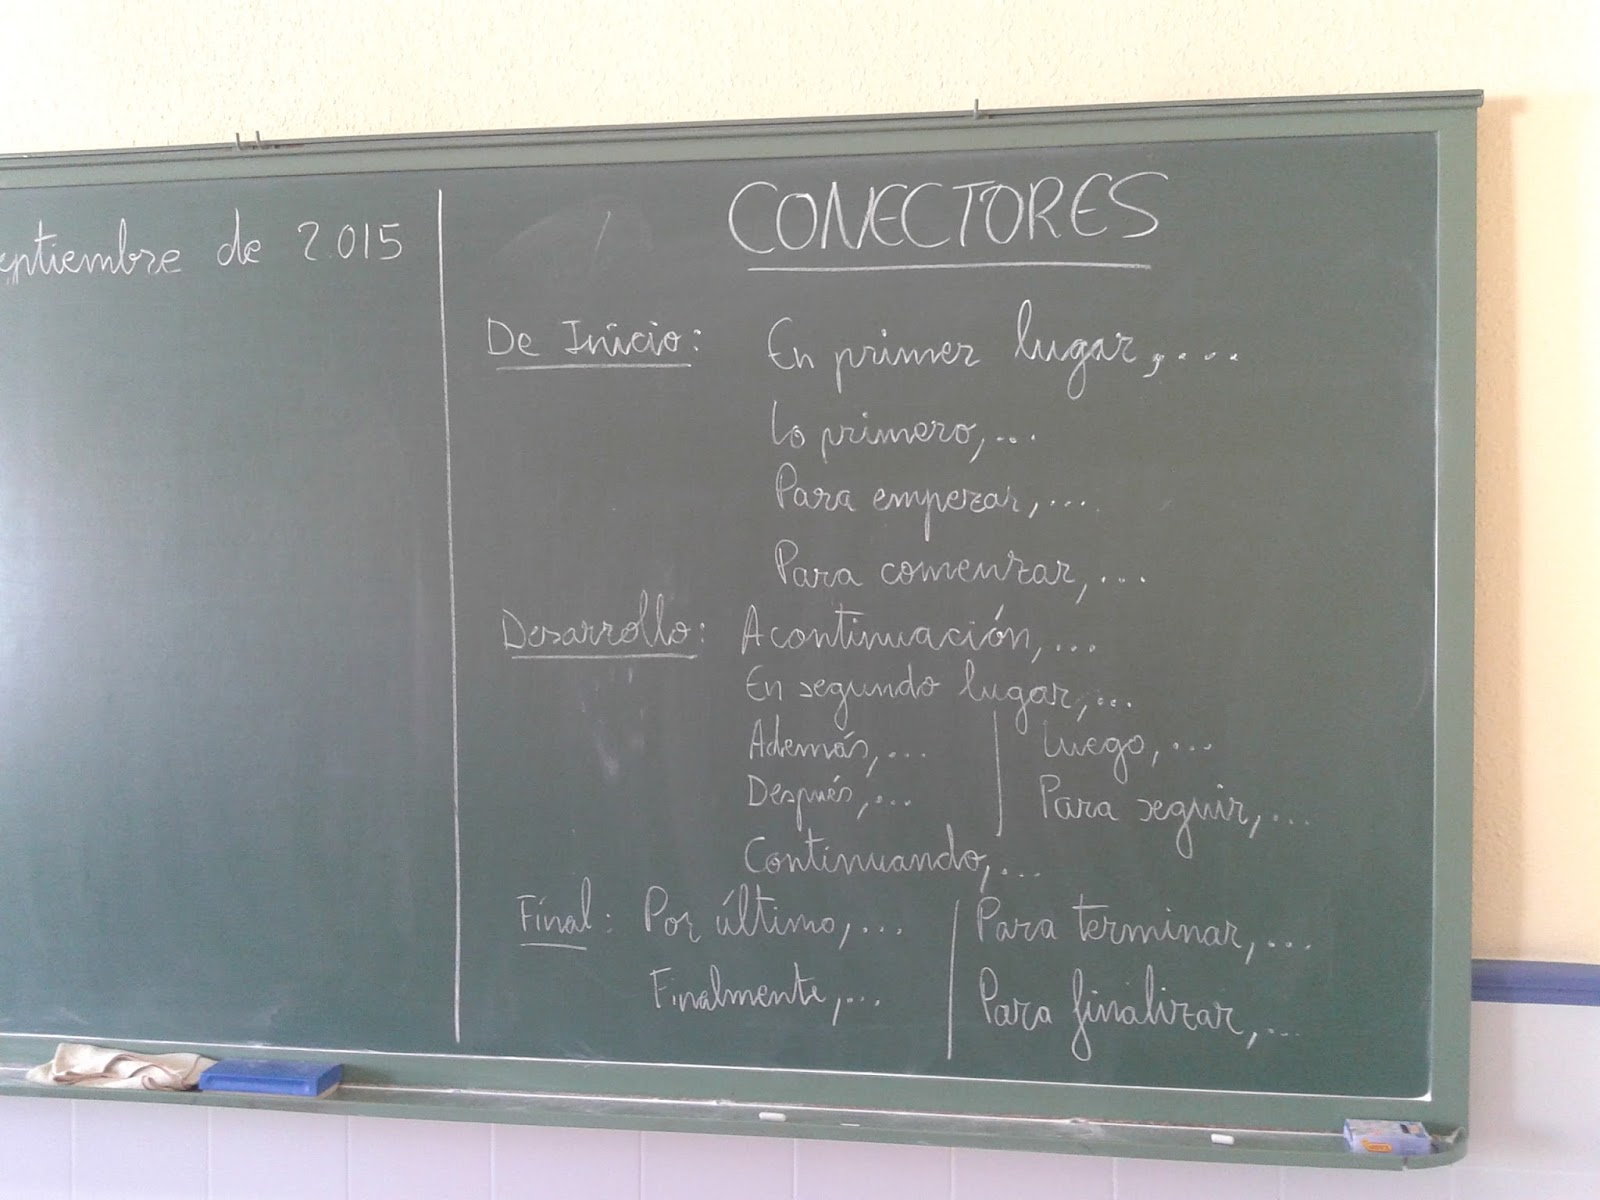 septiembre de 2.015
CONECTORES
De Inicio: En primer lugar,....
Lo primero,...
Para empezar,....
Para comenzar,...
Desarrollo: A continuación,...
En segundo lugar,...
Además,... | Luego,...
Después,... | Para seguir,...
Continuando,...
Final: Por último,... | Para terminar,...
Finalmente,... | Para finalizar,...